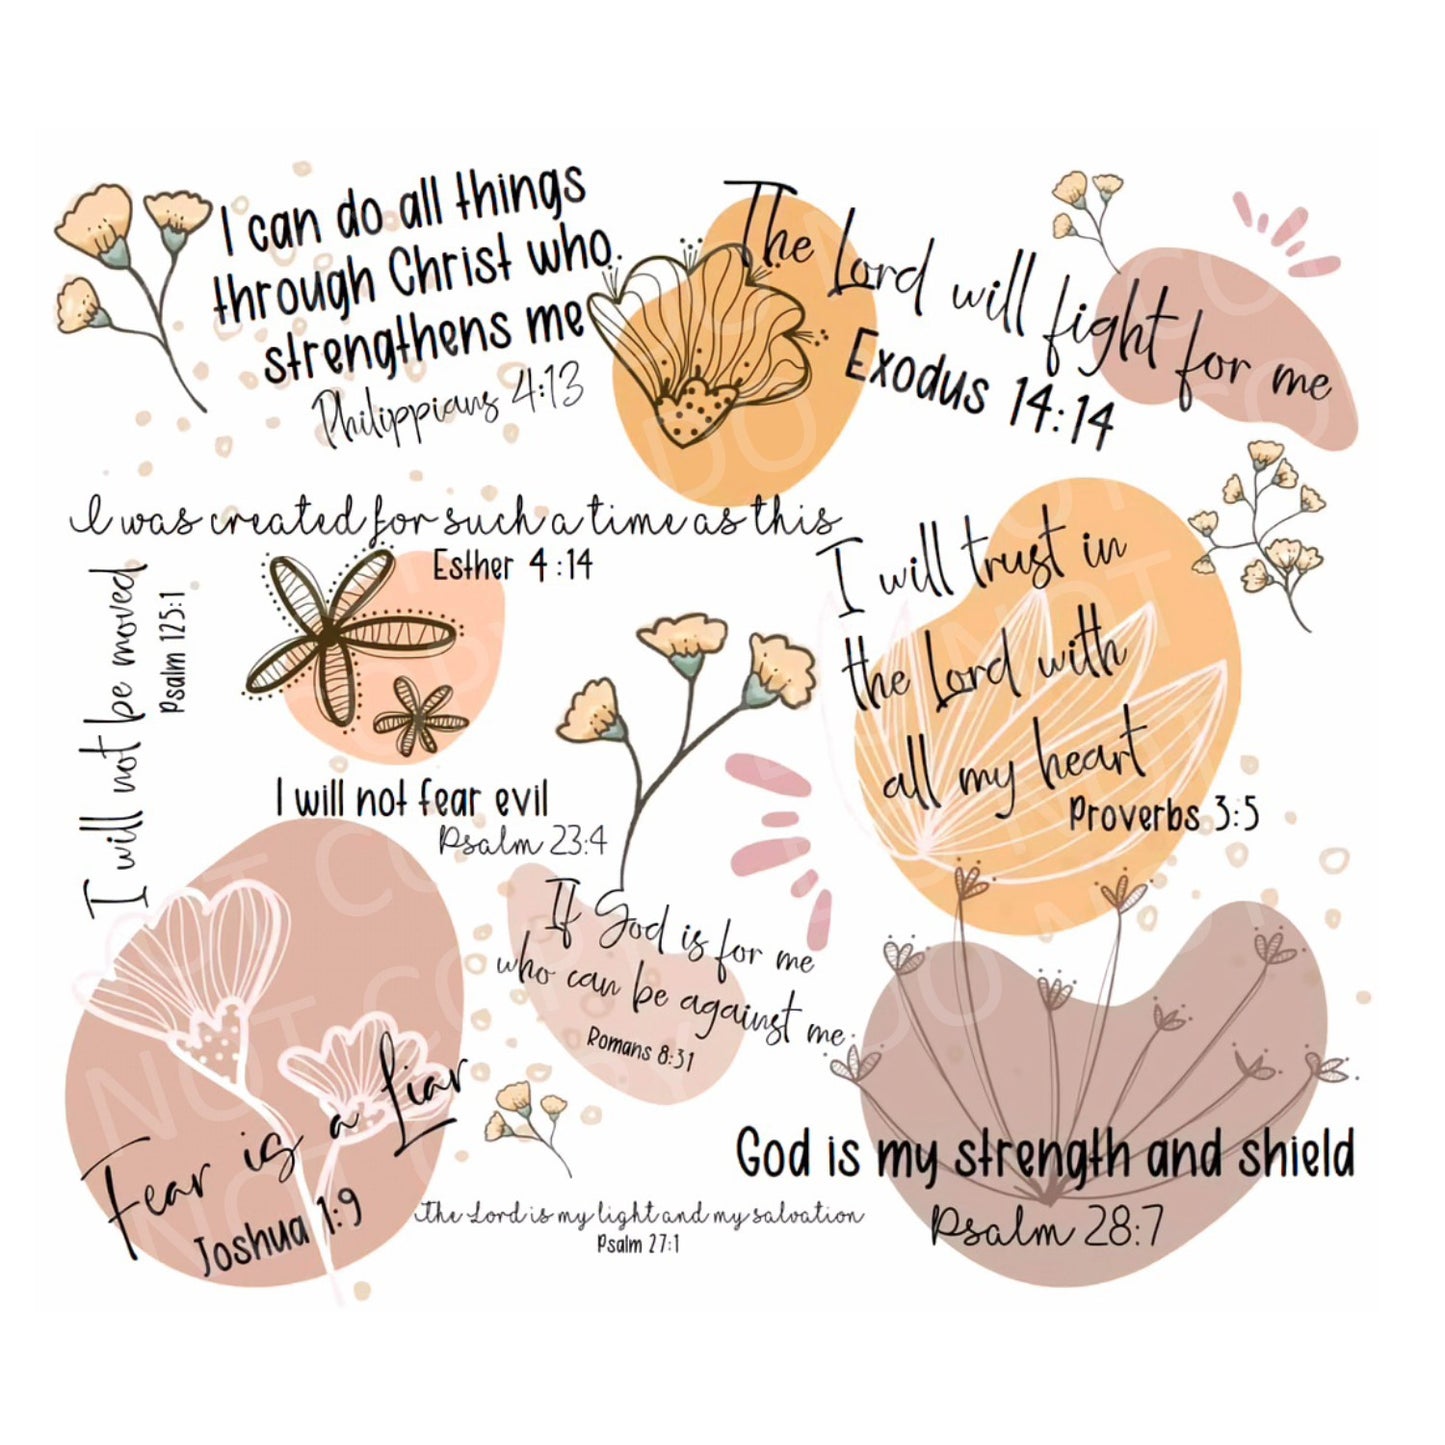 I can do all things
through Christ who
strengthens me
Philippians 4:13
The Lord will fight for me
Exodus 14:14
I was created for such a time as this
Esther 4:14
I will not be moved
Psalm 125:1
I will trust in
the Lord with
all my heart
Proverbs 3:5
I will not fear evil
Psalm 23:4
If God is for me
who can be against me
Romans 8:31
Fear is a Liar
Joshua 1:9
The Lord is my light and my salvation
Psalm 27:1
God is my strength and shield
Psalm 28:7
DO NOT COPY